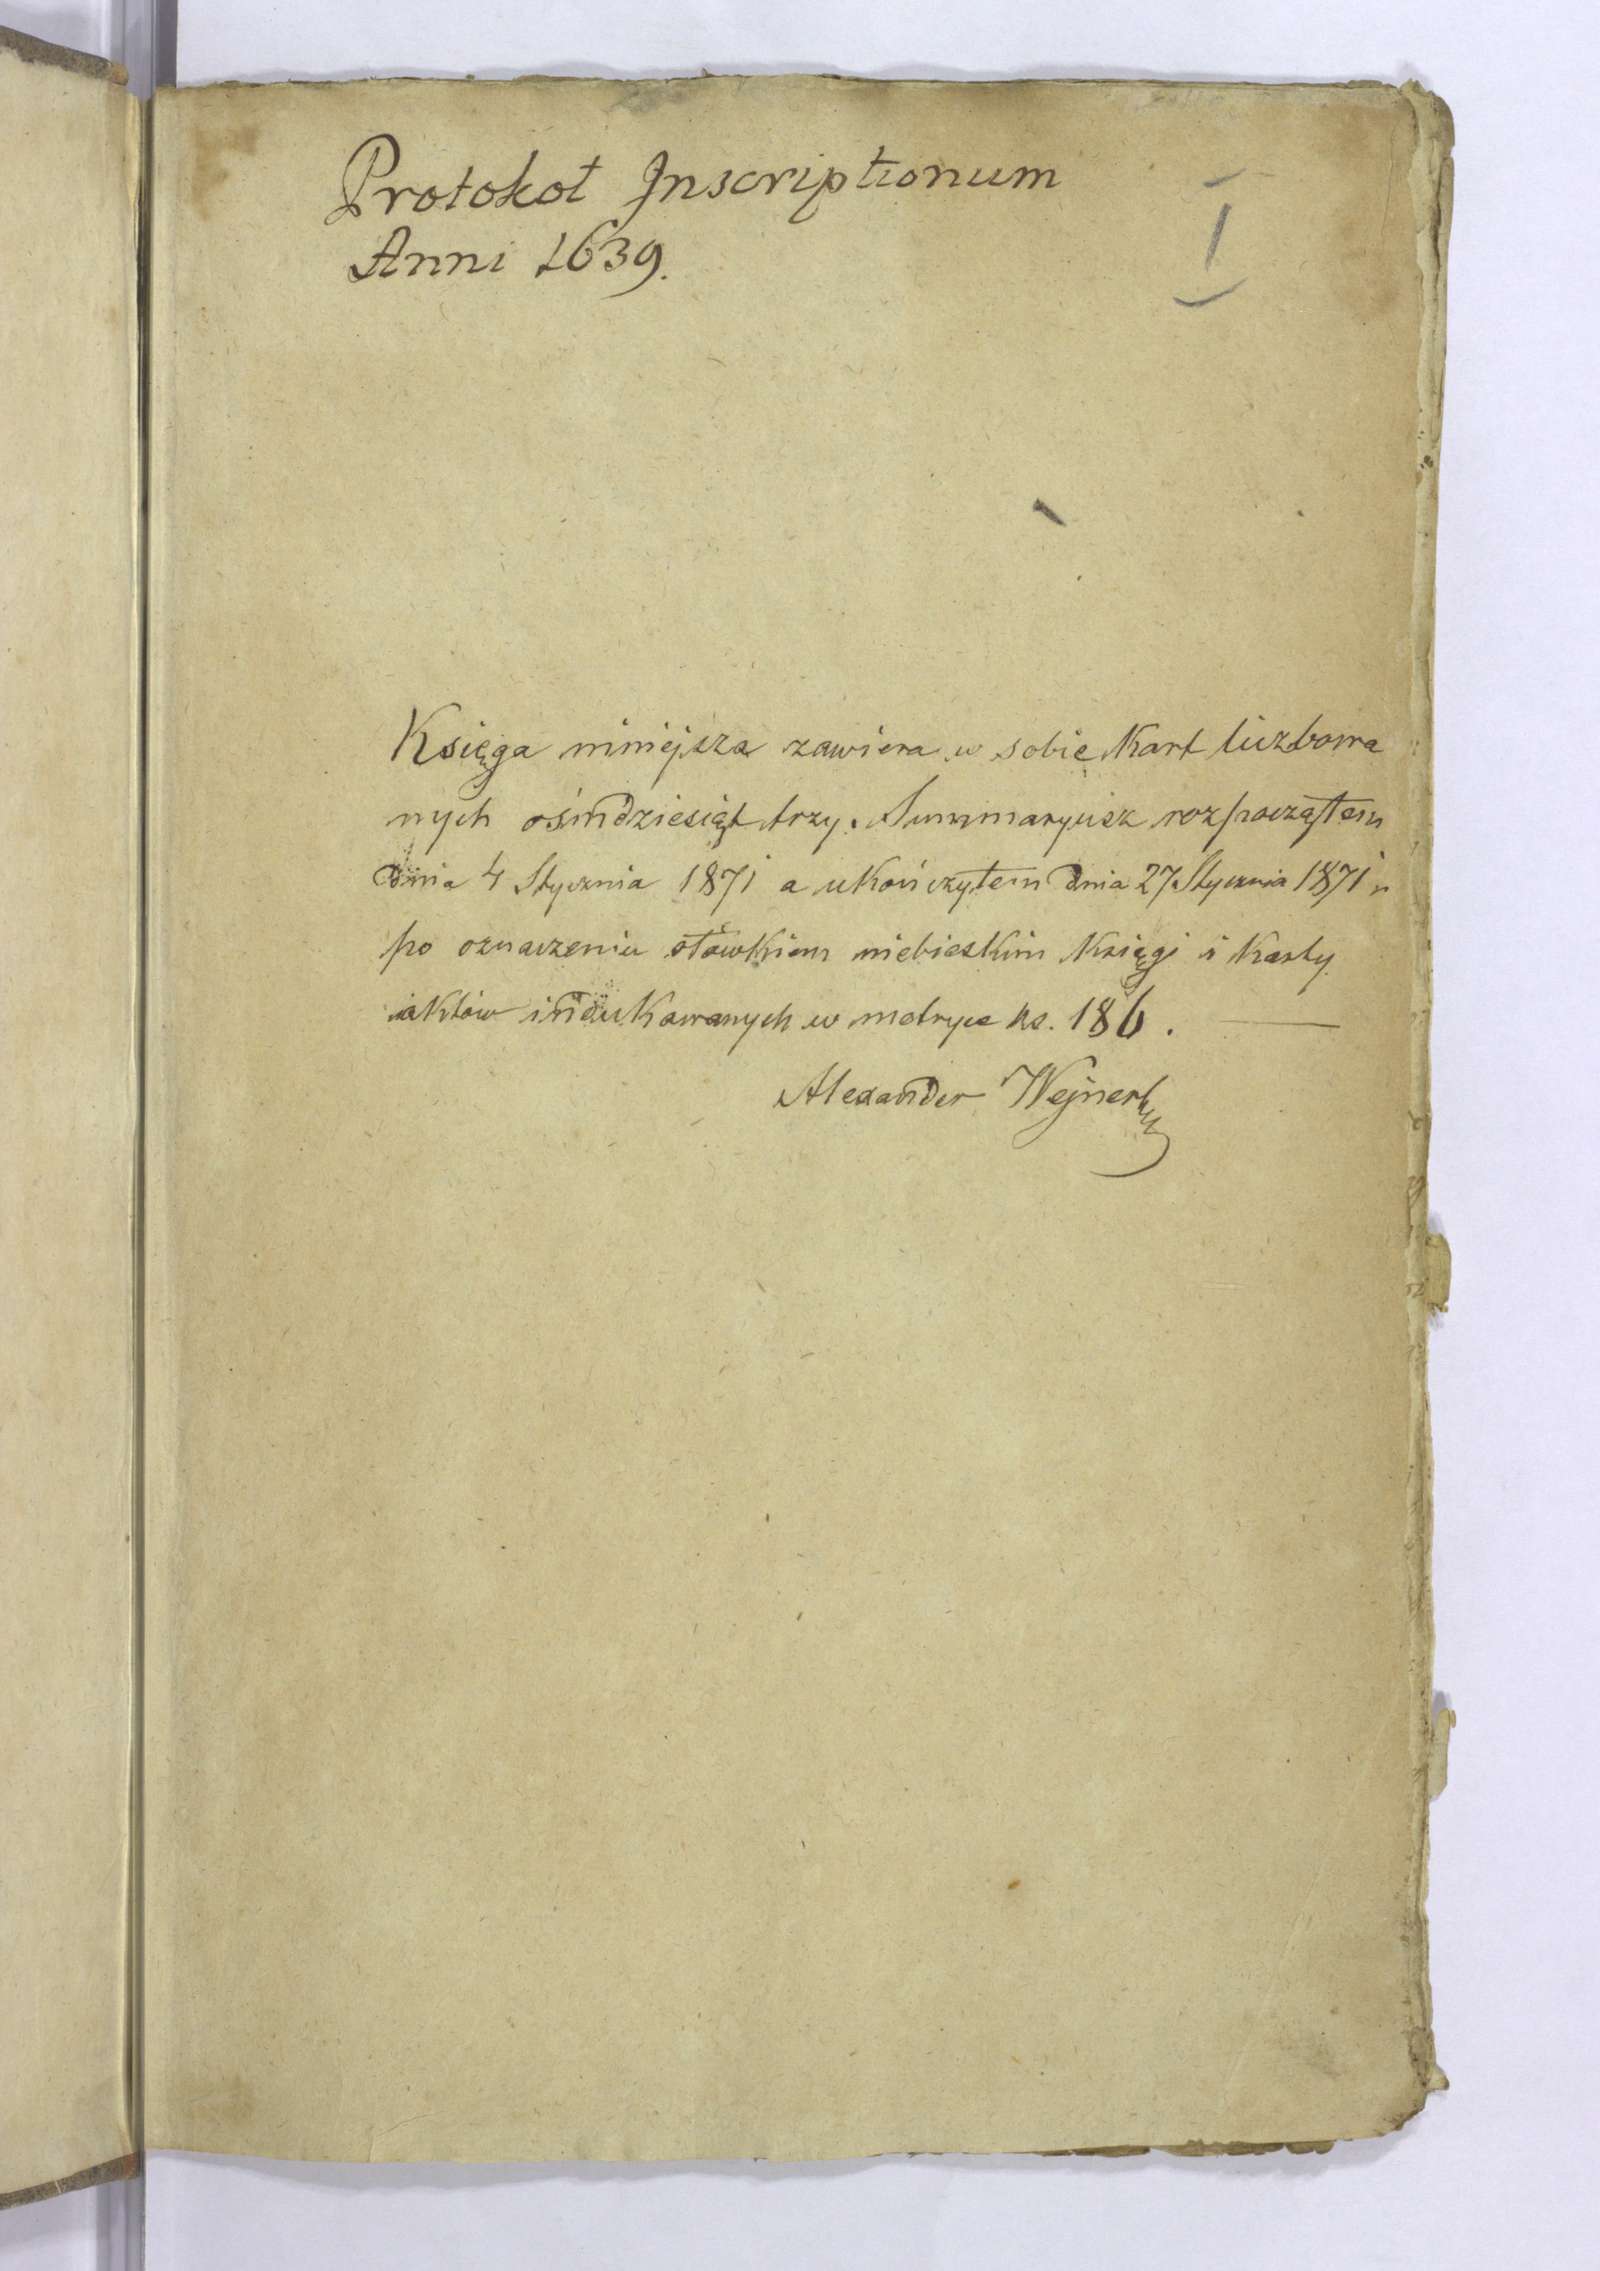 Protokoł Inscriptionum
I
Anni 1639.
Księga niniejsza zawiera w sobie Kart liczbowa
nych ośmdziesiąt trzy. Summaryusz rozpocząłem
dnia 4 Stycznia 1871 a ukończyłem dnia 27 Stycznia 1871 r
po oznaczeniu ołówkiem niebieskim Księgi i Karty
aktów indukowanych w metryce ks. 186.
Alexander Wejnert